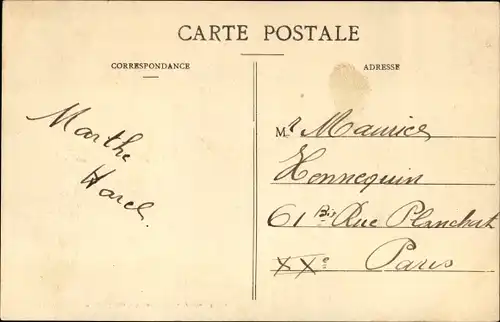 CARTE POSTALE
CORRESPONDANCE
ADRESSE
Marthe
Harel
Mr Maurice
Hennequin
61 Bis Rue Planchat
XXe
Paris